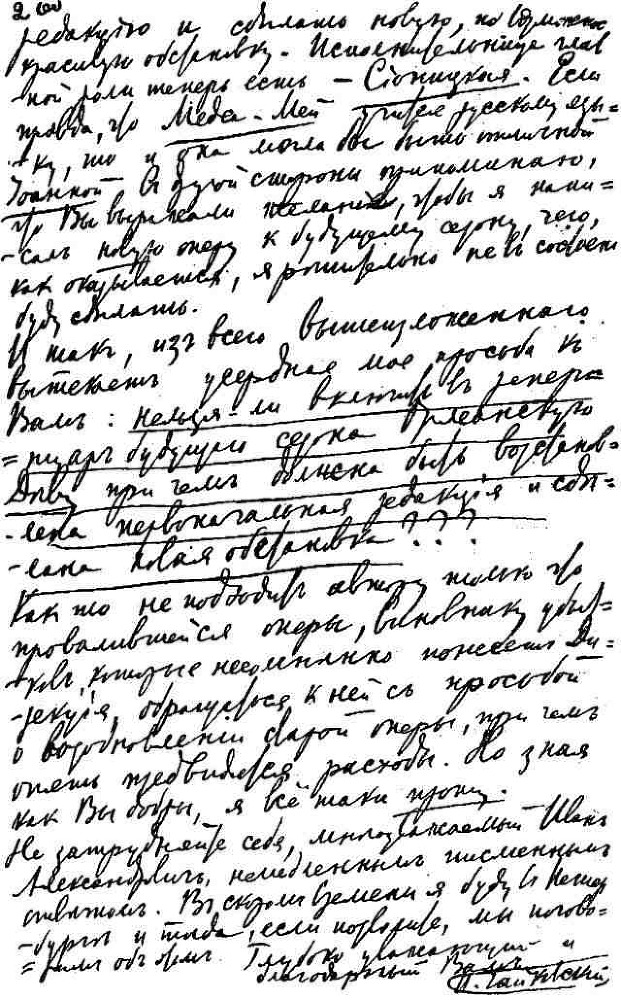 редакцію и сдѣлать новую, но возможно
красивую обстановку. Исполнительница глав
-ной роли теперь есть – Сіоницкая. Если
правда, что Медеа-Мей учится русскому язы-
-ку, то и она могла бы быть отличной
Іоанной. Съ другой стороны припоминаю,
что Вы выражали желаніе, чтобы я напи=
-салъ новую оперу к будущему сезону, чего,
как оказывается, я рѣшительно не въ состояніи
буду сдѣлать.
И такъ, изъ всего вышеизложеннаго
вытекаетъ усердная моя просьба къ
Вамъ: нельзя-ли включить въ репер=
=туаръ будущаго сезона Орлеанскую
Дѣву при чемъ должна быть возстанов-
-лена первоначальная редакція и сдѣ=
-лана новая обстановка???
Какъ то не подходитъ автору только что
провалившейся оперы, виновнику убыт-
-ковъ, которые несомнѣнно понесетъ Ди-
-рекція, обращаться к ней съ просьбой
о возобновленіи старой оперы, при чемъ
опять предвидятся расходы. Но зная
как Вы добры, я всё таки прошу.
Не затрудняйте себя, многоуважаемый Иванъ
Александровичъ, немедленнымъ письменнымъ
отвѣтомъ. Въ скоромъ времени я буду въ Петер
-бургѣ и тогда, если позволите, мы погово-
=римъ объ этомъ. Глубоко уважающій и
благодарный Вамъ
П. Чайковскій